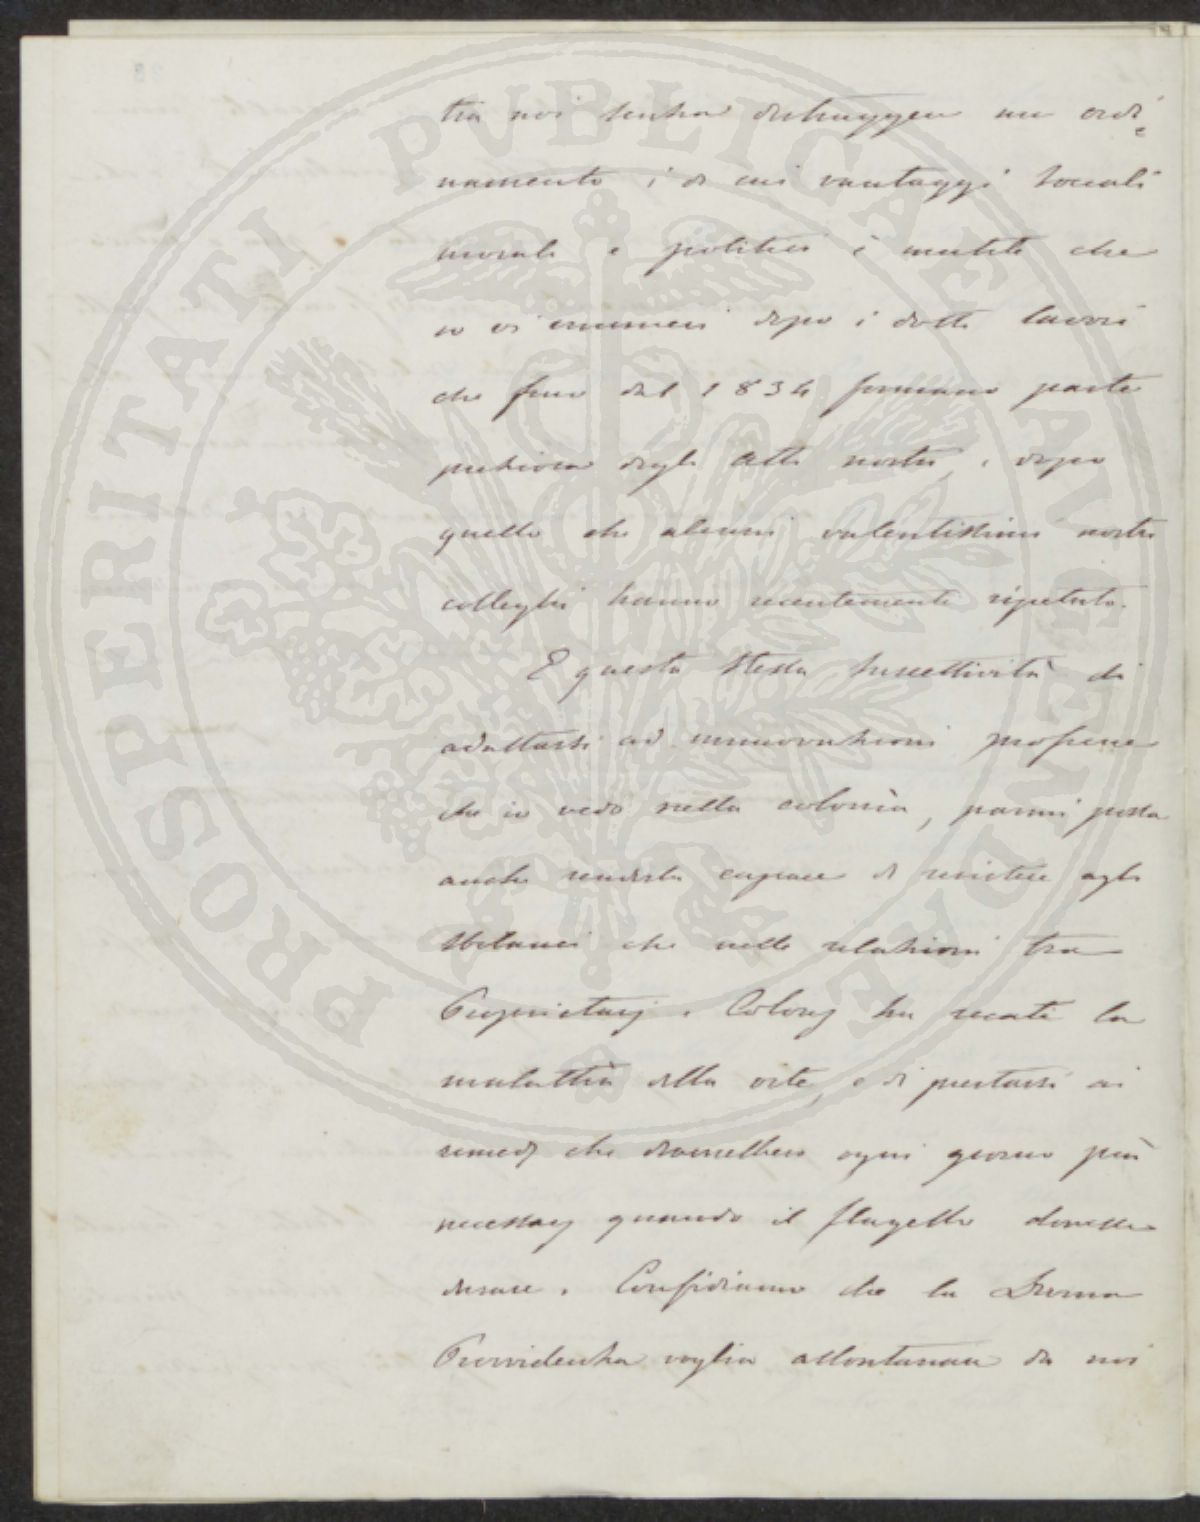 tra noi senza distruggere un ordi
namento i di cui vantaggi sociali
morali e politici è inutile che
io vi enumeri dopo i dotti lavori
che fino dal 1834 formano parte
preziosa degli Atti nostri, e dopo
quello che alcuni valentissimi nostri
colleghi hanno recentemente ripetuto.
E questa stessa suscettività di
adattarsi ad innovazioni proficue
che io vedo nella colonìa, parmi possa
anche renderla capace di resistere agli
sbilanci che nelle relazioni tra
Proprietarj e Colonj ha recati la
malattia della vite, e di prestarsi ai
rimedj che diverrebbero ogni giorno più
necessarj quando il flagello dovesse
durare. Confidiamo che la Divina
Provvidenza voglia allontanare da noi
PROSPERITATI PUBLICAE AUGENDAE